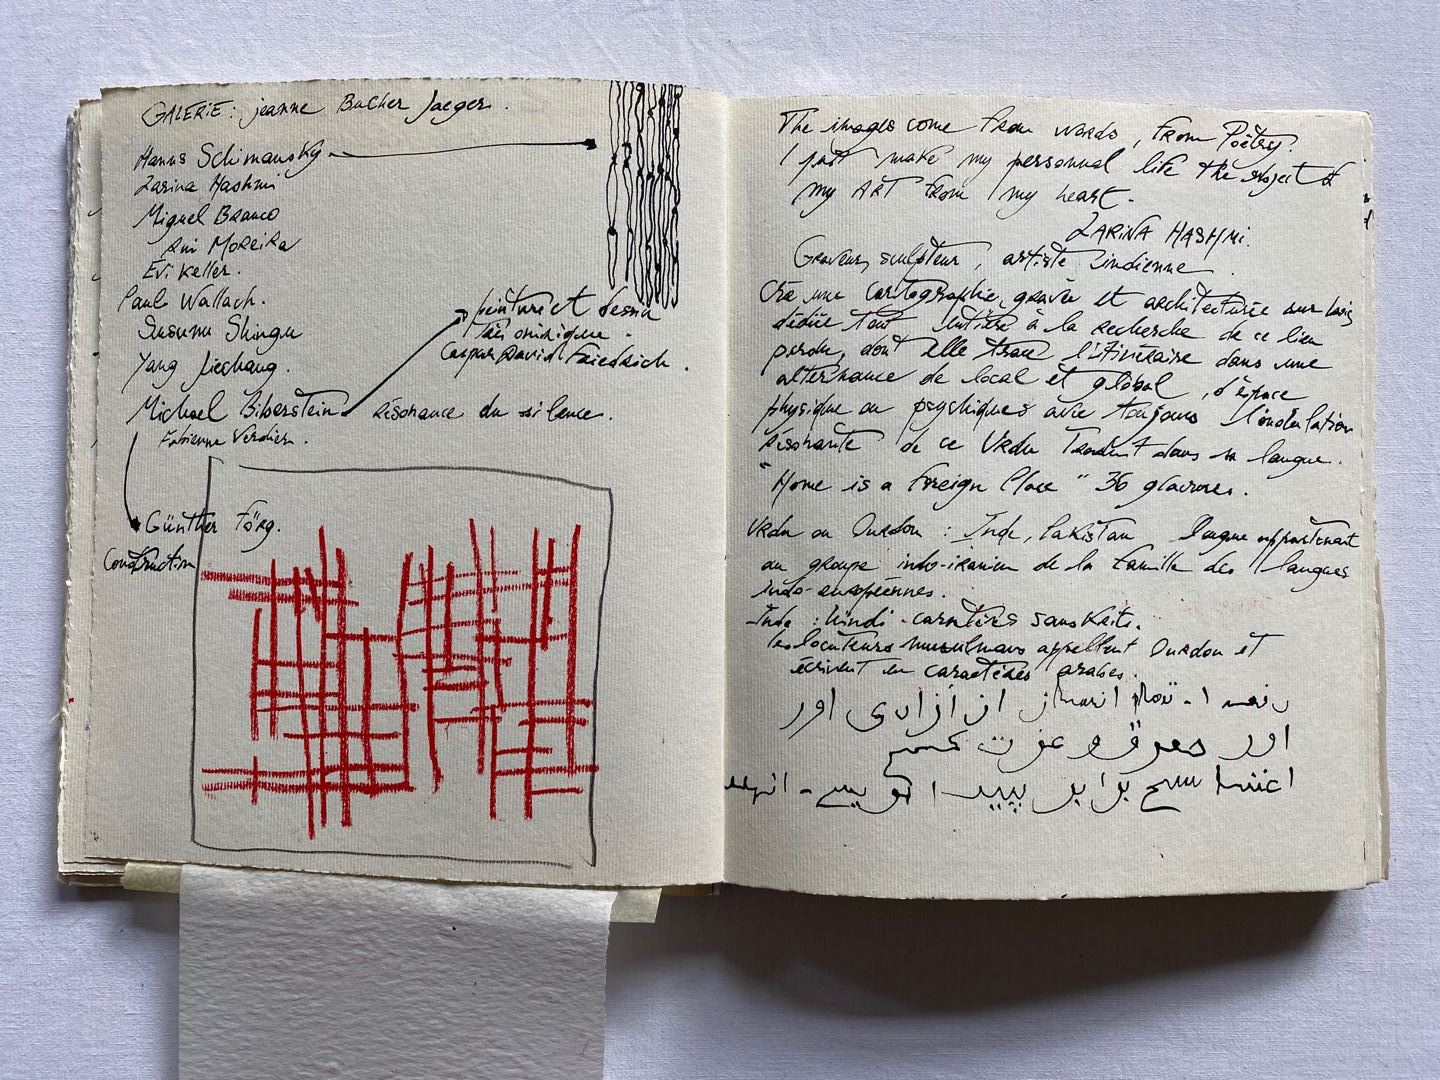 GALERIE : jeanne Bucher Jaeger.
Hanns Schimansky
Zarina Hashmi
Miguel Branco
Rui Moreira
Evi Keller.
Paul Wallach.
Susumu Shingu
Yang Jiechang.
peinture et dessin
Taï onirique.
Caspar David Friedrich.
Michael Biberstein résonance du silence.
Fabienne Verdier.
Günther Förg.
Construction
The images come from words, from Poëtry.
I just make my personnal life the subject of
my ART from my heart.
ZARINA HASHMI.
Graveur, sculpteur, artiste indienne.
Crée une cartographie, gravée et architecturée sur bois
dédiée tout entière à la recherche de ce lien
perdu, dont elle trace l'itinéraire dans une
alternance de local et global, d'espace
physique ou psychiques avec toujours l'ondulation
résonante de ce Urdu Traduit dans sa langue.
"Home is a Foreign Place" 36 gravures.
Urdu ou Ourdou : Inde, Pakistan langue appartenant
au groupe indo-iranien de la famille des langues
indo-européennes.
Inde : hindi - caractères sanskrits.
les locuteurs musulmans appellent Ourdou et
écrivent en caractères arabes.
دفعہ ۱ - تمام انسان آزادی اور
اور حقوق و عزت کے
اعتبار سے برابر پیدا ہوئے - انہیں